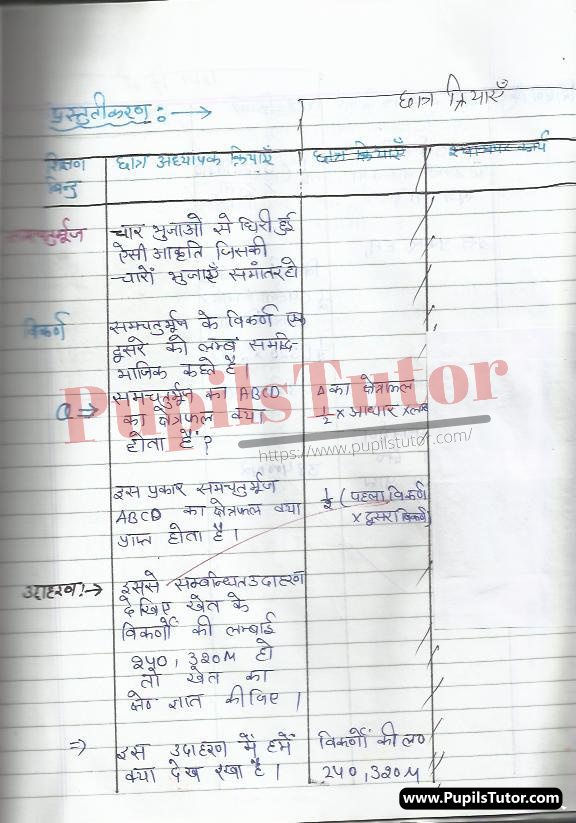 छात्र क्रियाएँ
प्रस्तुतीकरण : →
शिक्षण बिन्दु
छात्र अध्यापक क्रियाएँ
छात्र क्रियाएँ
कार्य
समचतुर्भूज
चार भुजाओ से घिरी हुई
ऐसी आकृति जिसकी
चारो भुजाएँ समांतर हो
विकर्ण
समचतुर्भूज के विकर्ण एक
दूसरे को लम्ब समद्वि-
भाजिक कहते है
Q →
समचतुर्भूज का ABCD
का क्षेत्रफल क्या
होता हैं ?
Δ का क्षेत्रफल
1/2 × आधार × लम्ब
PupilsTutor
https://www.pupilstutor.com/
इस प्रकार समचतुर्भूज
ABCD का क्षेत्रफल क्या
प्राप्त होता है ।
1/2 (पहला विकर्ण
× दूसरा विकर्ण)
उदाहरण :→
इससे सम्बन्धित उदाहरण
देखिए खेत के
विकर्णों की लम्बाई
240, 320M हो
तो खेत का
क्षे० ज्ञात कीजिए ।
⇒
इस उदाहरण में हमें
क्या देख रखा है ।
विकर्णों की ल०
240, 320M
www.PupilsTutor.com